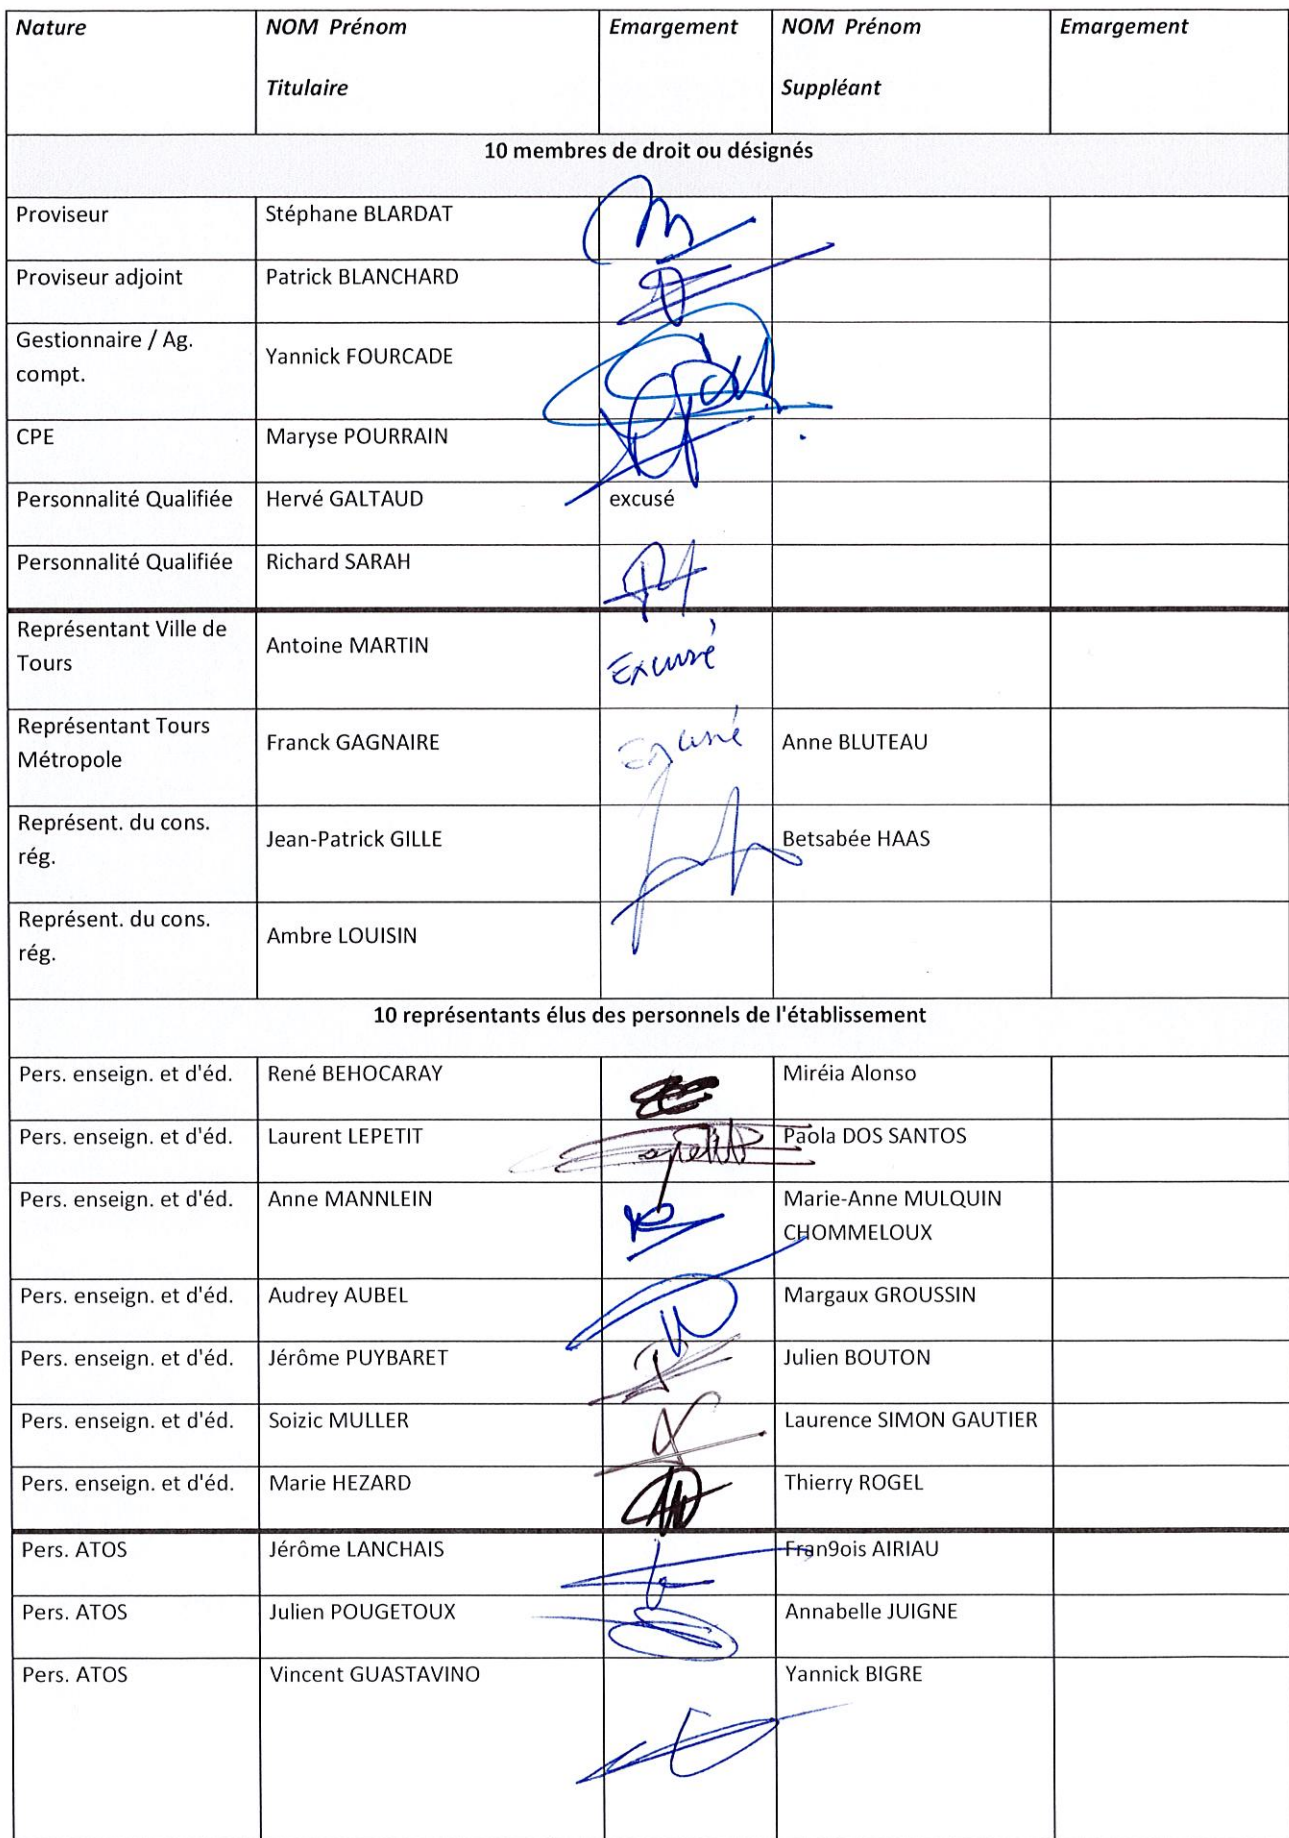 Nature NOM Prénom Emargement NOM Prénom Emargement
Titulaire Suppléant
10 membres de droit ou désignés
Proviseur Stéphane BLARDAT
Proviseur adjoint Patrick BLANCHARD
Gestionnaire / Ag.
compt.
Yannick FOURCADE
CPE Maryse POURRAIN
Personnalité Qualifiée Hervé GALTAUD excusé
Personnalité Qualifiée Richard SARAH
Représentant Ville de
Tours
Antoine MARTIN Excusé
Représentant Tours
Métropole
Franck GAGNAIRE Excusé Anne BLUTEAU
Représent. du cons.
rég.
Jean-Patrick GILLE Betsabée HAAS
Représent. du cons.
rég.
Ambre LOUISIN
10 représentants élus des personnels de l'établissement
Pers. enseign. et d'éd. René BEHOCARAY Miréia Alonso
Pers. enseign. et d'éd. Laurent LEPETIT Paola DOS SANTOS
Pers. enseign. et d'éd. Anne MANNLEIN Marie-Anne MULQUIN
CHOMMELOUX
Pers. enseign. et d'éd. Audrey AUBEL Margaux GROUSSIN
Pers. enseign. et d'éd. Jérôme PUYBARET Julien BOUTON
Pers. enseign. et d'éd. Soizic MULLER Laurence SIMON GAUTIER
Pers. enseign. et d'éd. Marie HEZARD Thierry ROGEL
Pers. ATOS Jérôme LANCHAIS Fran9ois AIRIAU
Pers. ATOS Julien POUGETOUX Annabelle JUIGNE
Pers. ATOS Vincent GUASTAVINO Yannick BIGRE